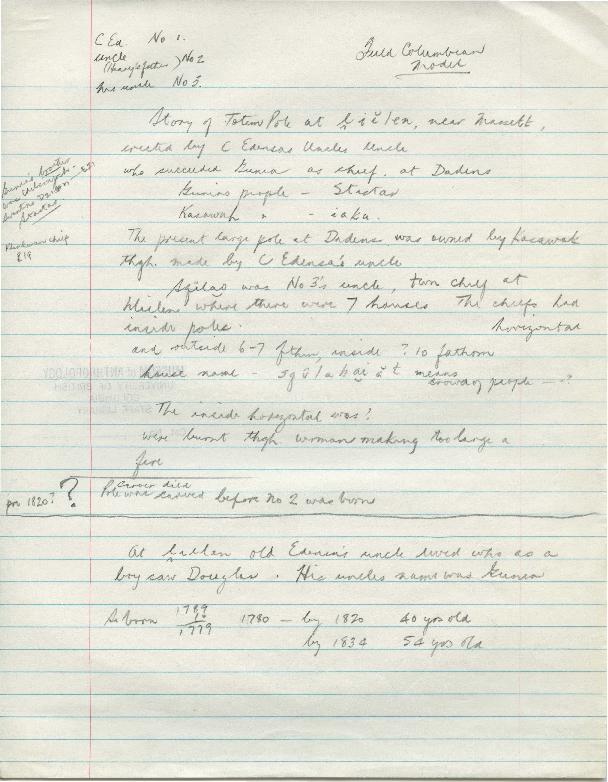 C Ed. No 1.
uncle
(Henry's father) No 2
his uncle No 3.
Field Columbian
Model
Story of Totem Pole at near Massett,
erected by C Edensas Uncles Uncle
who succeeded Gunia as chief. at Dadens
Gunias people - Stastas
Kasawak " -
The present large pole at Dadens was owned by Kasawak
thgh. made by C Edensa's uncle
was No 3's uncle, town chief at
where there were 7 houses The chiefs had
inside poles. horizontal
and outside 6-7 fthm, inside ? 10 fathom
house name - means
crowd of people — ?
The inside horizontal was?
were burnt thgh. woman making too large a
fire
carver died
pre 1820? ? Pole was carved before No 2 was born
At old Edensa's uncle lived who as a
boy saw Douglas. His uncles name was Gunia
So born 1789
10
1779
1780 - by 1820 40 yrs old
by 1834 54 yrs old
Gunia's brother
was
brother
Stastas
chief
MUSEUM of ANTHROPOLOGY
UNIVERSITY OF BRITISH
COLUMBIA